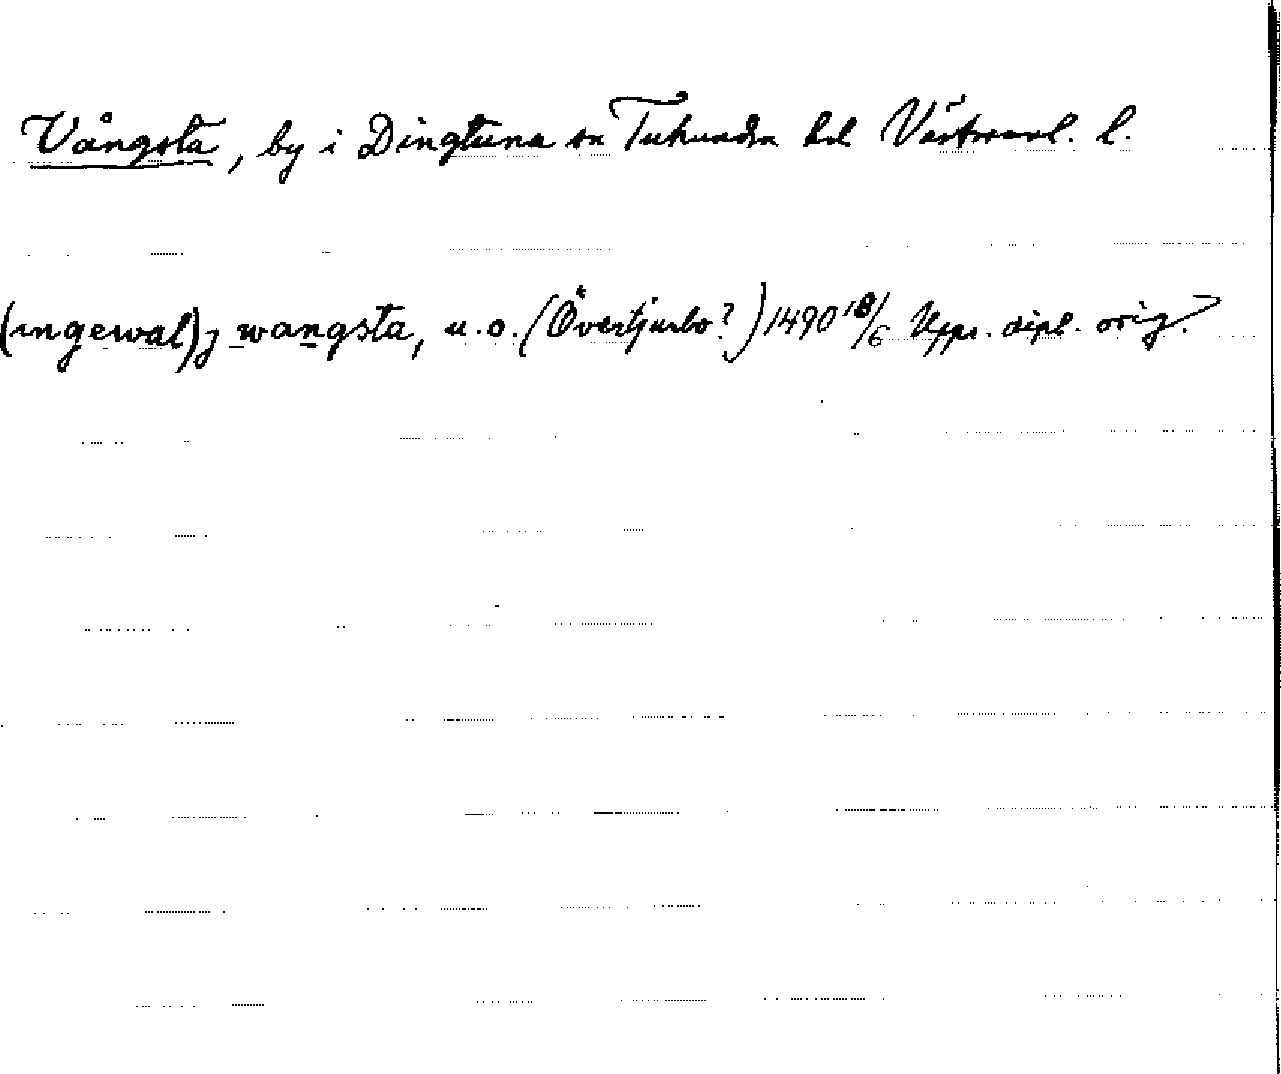 Vångsta, by i Dingtuna sn Tuhundra hd Västmanl. l.
(ingewal) j wangsta, u.o. (Övertjurbo?) 1490 18/6 Upps. dipl. orig.